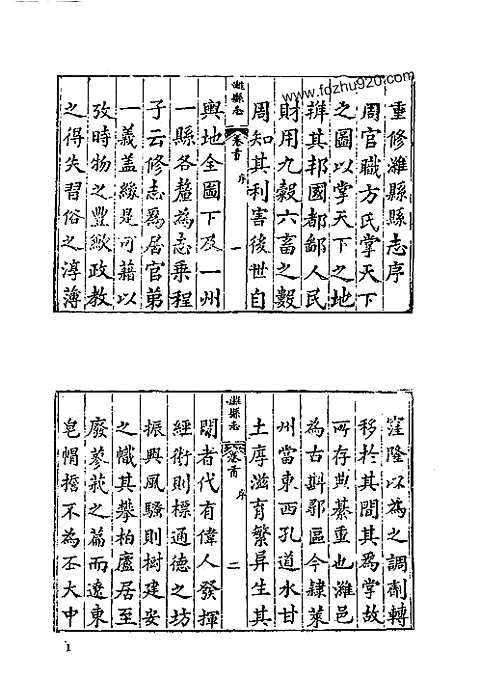 www.fdzhu920.com
重修濰縣縣志序
周官職方氏掌天下
之圖以掌天下之地
辨其邦國都鄙人民
財用九穀六畜之數
周知其利害後世自
濰縣志 卷首 序 一
輿地全圖下及一州
一縣各釐為志乘程
子云修志為居官第
一義蓋緣是可藉以
攷時物之豐歉政教
之得失習俗之淳薄
窪隆以為之調劑轉
移於其間其為掌故
所存典綦重也濰邑
為古斟鄩區今隸萊
州當東西孔道水甘
土厚滋育繁昇生其
濰縣志 卷首 序 二
間者代有偉人發揮
經術則標通德之坊
振興風騷則樹建安
之幟其攀柏廬居至
廢蓼莪之篇而遼東
皂帽擔不為丕大中
1